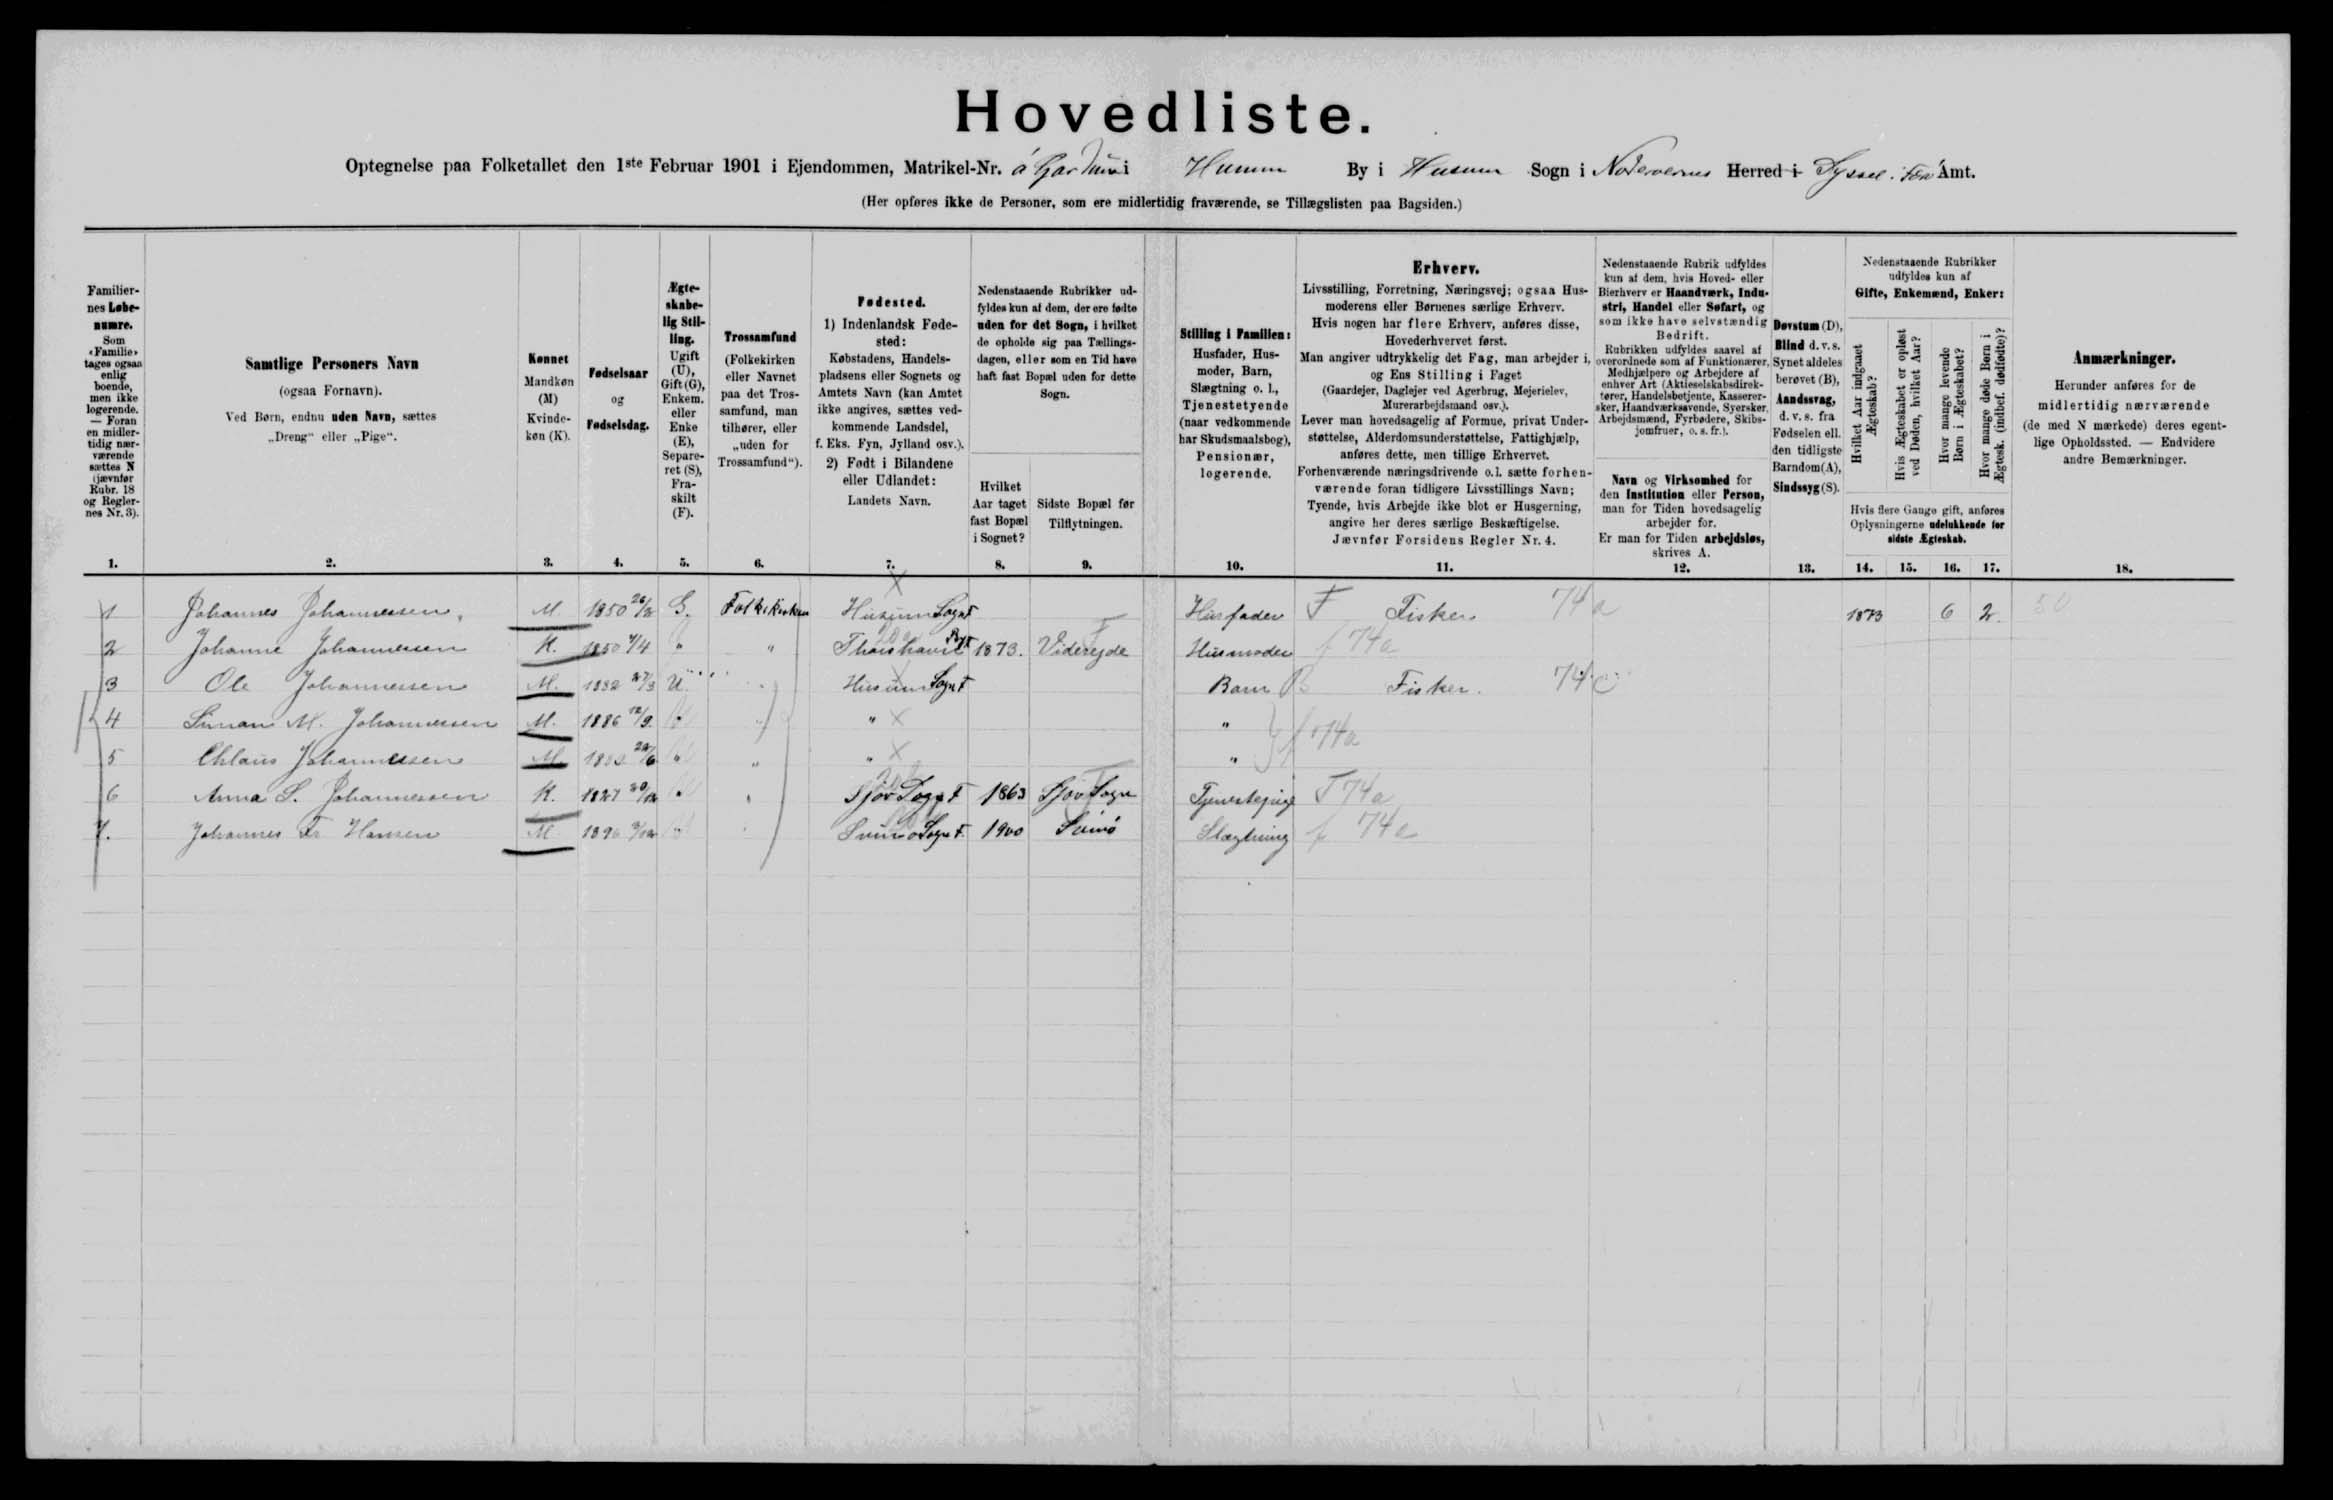 Hovedliste.
Optegnelse paa Folketallet den 1ste Februar 1901 i Ejendommen, Matrikel-Nr. á i Husum By i Husum Sogn i Norderoernes Herred i Syssel. Før Amt.
(Her opføres ikke de Personer, som ere midlertidig fraværende, se Tillægslisten paa Bagsiden.)
Familier-
nes Løbe-
numre.
Som
«Familie»
tages ogsaa
enlig
boende,
men ikke
logerende.
— Foran
en midler-
tidig nær-
værende
sættes N
(jævnfør
Rubr. 18
og Regler-
nes Nr. 3).
1.
Samtlige Personers Navn
(ogsaa Fornavn).
Ved Børn, endnu uden Navn, sættes
„Dreng“ eller „Pige“.
2.
Kønnet
Mandkøn
(M)
Kvinde-
køn (K).
3.
Fødselsaar
og
Fødselsdag.
4.
Ægte-
skabe-
lig Stil-
ling.
Ugift
(U),
Gift (G),
Enkem.
eller
Enke
(E),
Separe-
ret (S),
Fra-
skilt
(F).
5.
Trossamfund
(Folkekirken
eller Navnet
paa det Tros-
samfund, man
tilhører, eller
„uden for
Trossamfund“).
6.
Fødested.
1) Indenlandsk Føde-
sted:
Købstadens, Handels-
pladsens eller Sognets og
Amtets Navn (kan Amtet
ikke angives, sættes ved-
kommende Landsdel,
f. Eks. Fyn, Jylland osv.).
2) Født i Bilandene
eller Udlandet:
Landets Navn.
7.
Nedenstaaende Rubrikker ud-
fyldes kun af dem, der ere fødte
uden for det Sogn, i hvilket
de opholde sig paa Tællings-
dagen, eller som en Tid have
haft fast Bopæl uden for dette
Sogn.
Hvilket
Aar taget
fast Bopæl
i Sognet?
8.
Sidste Bopæl før
Tilflytningen.
9.
Stilling i Familien:
Husfader, Hus-
moder, Barn,
Slægtning o. l.,
Tjenestetyende
(naar vedkommende
har Skudsmaalsbog),
Pensionær,
logerende.
10.
Erhverv.
Livsstilling, Forretning, Næringsvej; ogsaa Hus-
moderens eller Børnenes særlige Erhverv.
Hvis nogen har flere Erhverv, anføres disse,
Hovederhvervet først.
Man angiver udtrykkelig det Fag, man arbejder i,
og Ens Stilling i Faget
(Gaardejer, Daglejer ved Agerbrug, Mejerielev,
Murerarbejdsmand osv.).
Lever man hovedsagelig af Formue, privat Under-
støttelse, Alderdomsunderstøttelse, Fattighjælp,
anføres dette, men tillige Erhvervet.
Forhenværende næringsdrivende o.l. sætte forhen-
værende foran tidligere Livsstillings Navn;
Tyende, hvis Arbejde ikke blot er Husgerning,
angive her deres særlige Beskæftigelse.
Jævnfør Forsidens Regler Nr. 4.
11.
Nedenstaaende Rubrik udfyldes
kun af dem, hvis Hoved- eller
Bierhverv er Haandværk, Indu-
stri, Handel eller Søfart, og
som ikke have selvstændig
Bedrift.
Rubrikken udfyldes saavel af
overordnede som af Funktionærer,
Medhjælpere og Arbejdere af
enhver Art (Aktieselskabsdirek-
tører, Handelsbetjente, Kasserer-
sker, Haandværkssvende, Syersker,
Arbejdsmænd, Fyrbødere, Skibs-
jomfruer, o. s. fr.).
Navn og Virksomhed for
den Institution eller Person,
man for Tiden hovedsagelig
arbejder for.
Er man for Tiden arbejdsløs,
skrives A.
12.
Døvstum (D),
Blind d. v. s.
Synet aldeles
berøvet (B),
Aandssvag,
d. v. s. fra
Fødselen ell.
den tidligste
Barndom (A),
Sindssyg (S).
13.
Nedenstaaende Rubrikker
udfyldes kun af
Gifte, Enkemænd, Enker:
Hvilket Aar indgaaet
Ægteskab?
Hvis Ægteskabet er opløst
ved Døden, hvilket Aar?
Hvor mange levende
Børn i Ægteskabet?
Hvor mange døde Børn i
Ægtesk. (indbef. dødfødte)?
Hvis flere Gange gift, anføres
Oplysningerne udelukkende for
sidste Ægteskab.
14. 15. 16. 17.
Anmærkninger.
Herunder anføres for de
midlertidig nærværende
(de med N mærkede) deres egent-
lige Opholdssted. — Endvidere
andre Bemærkninger.
18.
1 Johannes Johannessen. M 1850 G. Folkekirken Husum Sogn F Husfader F Fisker 74a 1873 6 2. 50
2 Johanne Johannessen K. 1850 4/4 " " Thorshavn 1873. Viderejde Husmoder f 74a
3 Ole Johannessen M. 1882 27/3 U " Husum Sogn F Barn B Fisker. 74c
4 Simon M. Johannessen M. 1886 12/9. " " " " f 74a
5 Johannessen M " " " "
6 Anna S. Johannessen K. 1827 " " Sjov Sogn F 1863 Sjov Sogn Tjenestepige F 74a
7. Johannes Fr Hansen M 1896 " " Svinø Sogn F. 1900 Svinø Slægtning f 74a